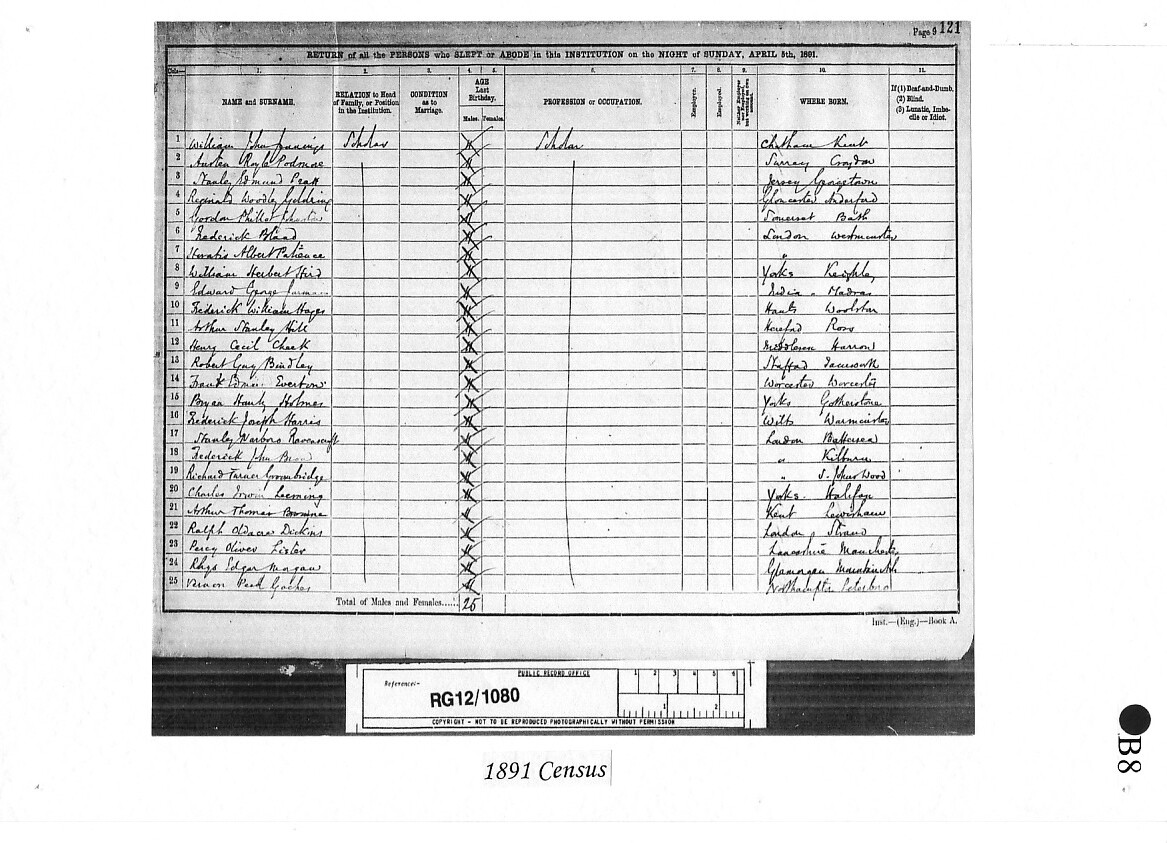 Page 9 121
RETURN of all the PERSONS who SLEPT or ABODE in this INSTITUTION on the NIGHT of SUNDAY, APRIL 5th, 1891.
1. 2. 3. 4. 5. 6. 7. 8. 9. 10. 11.
NAME and SURNAME. RELATION to Head of Family, or Position in the Institution. CONDITION as to Marriage. AGE Last Birthday. Males. Females. PROFESSION or OCCUPATION. Employer. Employed. Neither Employer nor Employed, but working on own account. WHERE BORN. If (1) Deaf-and-Dumb. (2) Blind. (3) Lunatic, Imbecile or Idiot.
1 William John Jennings Scholar Scholar Chatham Kent
2 Austen Royle Podmore Surrey Croydon
3 Stanley Edmund Pratt Jersey Georgetown
4 Reginald Woodley Goldring Gloucester
5 Gordon Phillot Somerset Bath
6 Frederick Bland London Westminster
7 Horatio Albert Patience "
8 William Herbert Hird Yorks Keighley
9 Edward George India " Madras
10 Frederick William Hayes Hants Woolston
11 Arthur Stanley Hill Hereford Ross
12 Henry Cecil Cheek Middlesex Harrow
13 Robert Guy Bindley Stafford Tamworth
14 Frank Everton Worcester Worcester
15 Bryan Holmes Yorks
16 Frederick Joseph Harris Wilts Warminster
17 Stanley Narboro Ravenscroft London Battersea
18 Frederick John " Kilburn
19 Richard Turner Groombridge " S. Johns Wood
20 Charles Irwin Leeming Yorks. Halifax
21 Arthur Thomas Kent Lewisham
22 Ralph Oldacres Dickins London Strand
23 Percy Oliver Lister Lancashire Manchester
24 Rhys Edgar Morgan Glamorgan
25 Vernon Peck Gaches Northampton Peterboro
Total of Males and Females...... 25
Inst.—(Eng.)—Book A.
PUBLIC RECORD OFFICE
Reference:-
RG12/1080
1 2 3 4 5 6
1 2
COPYRIGHT - NOT TO BE REPRODUCED PHOTOGRAPHICALLY WITHOUT PERMISSION
1891 Census
B8